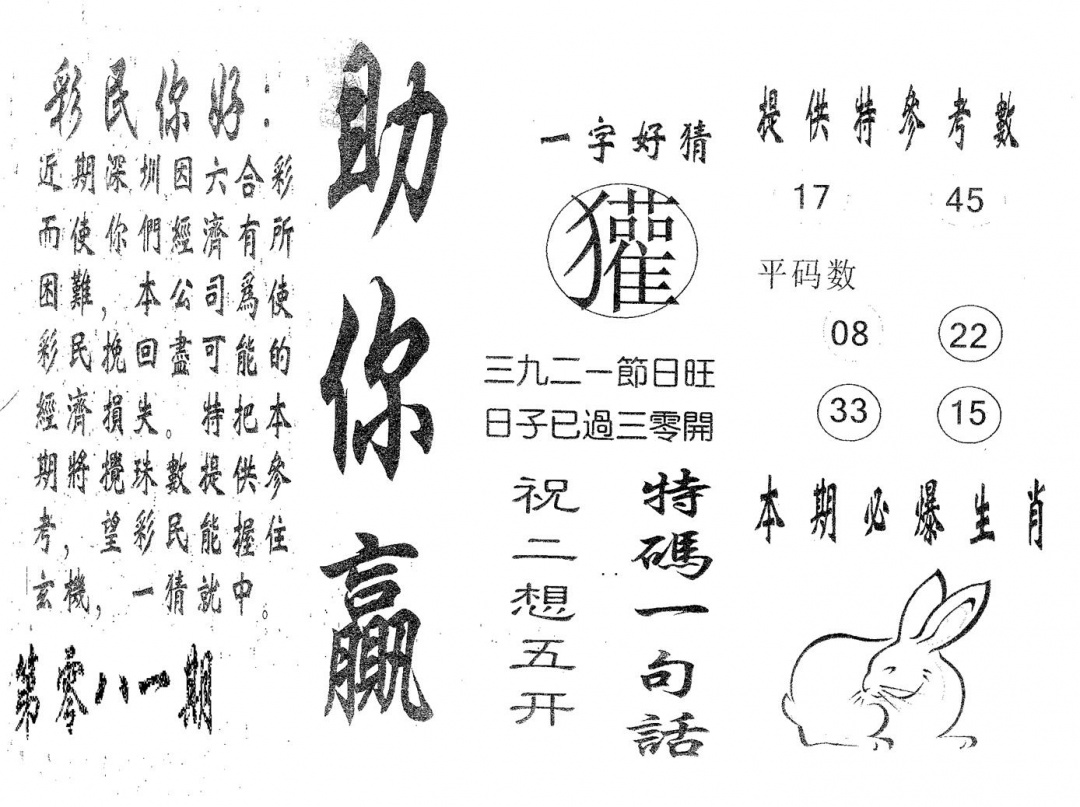 彩民你好：
近期深圳因六合彩
而使你們經濟有所
困難，本公司爲使
彩民挽回盡可能的
經濟損失。特把本
期將攪珠數提供參
考，望彩民能握住
玄機，一猜就中。
第零八一期
助你贏
一字好猜
獾
三九二一節日旺
日子已過三零開
特碼一句話
祝二想五开
提供特參考數
17 45
平码数
08 22
33 15
本期必爆生肖